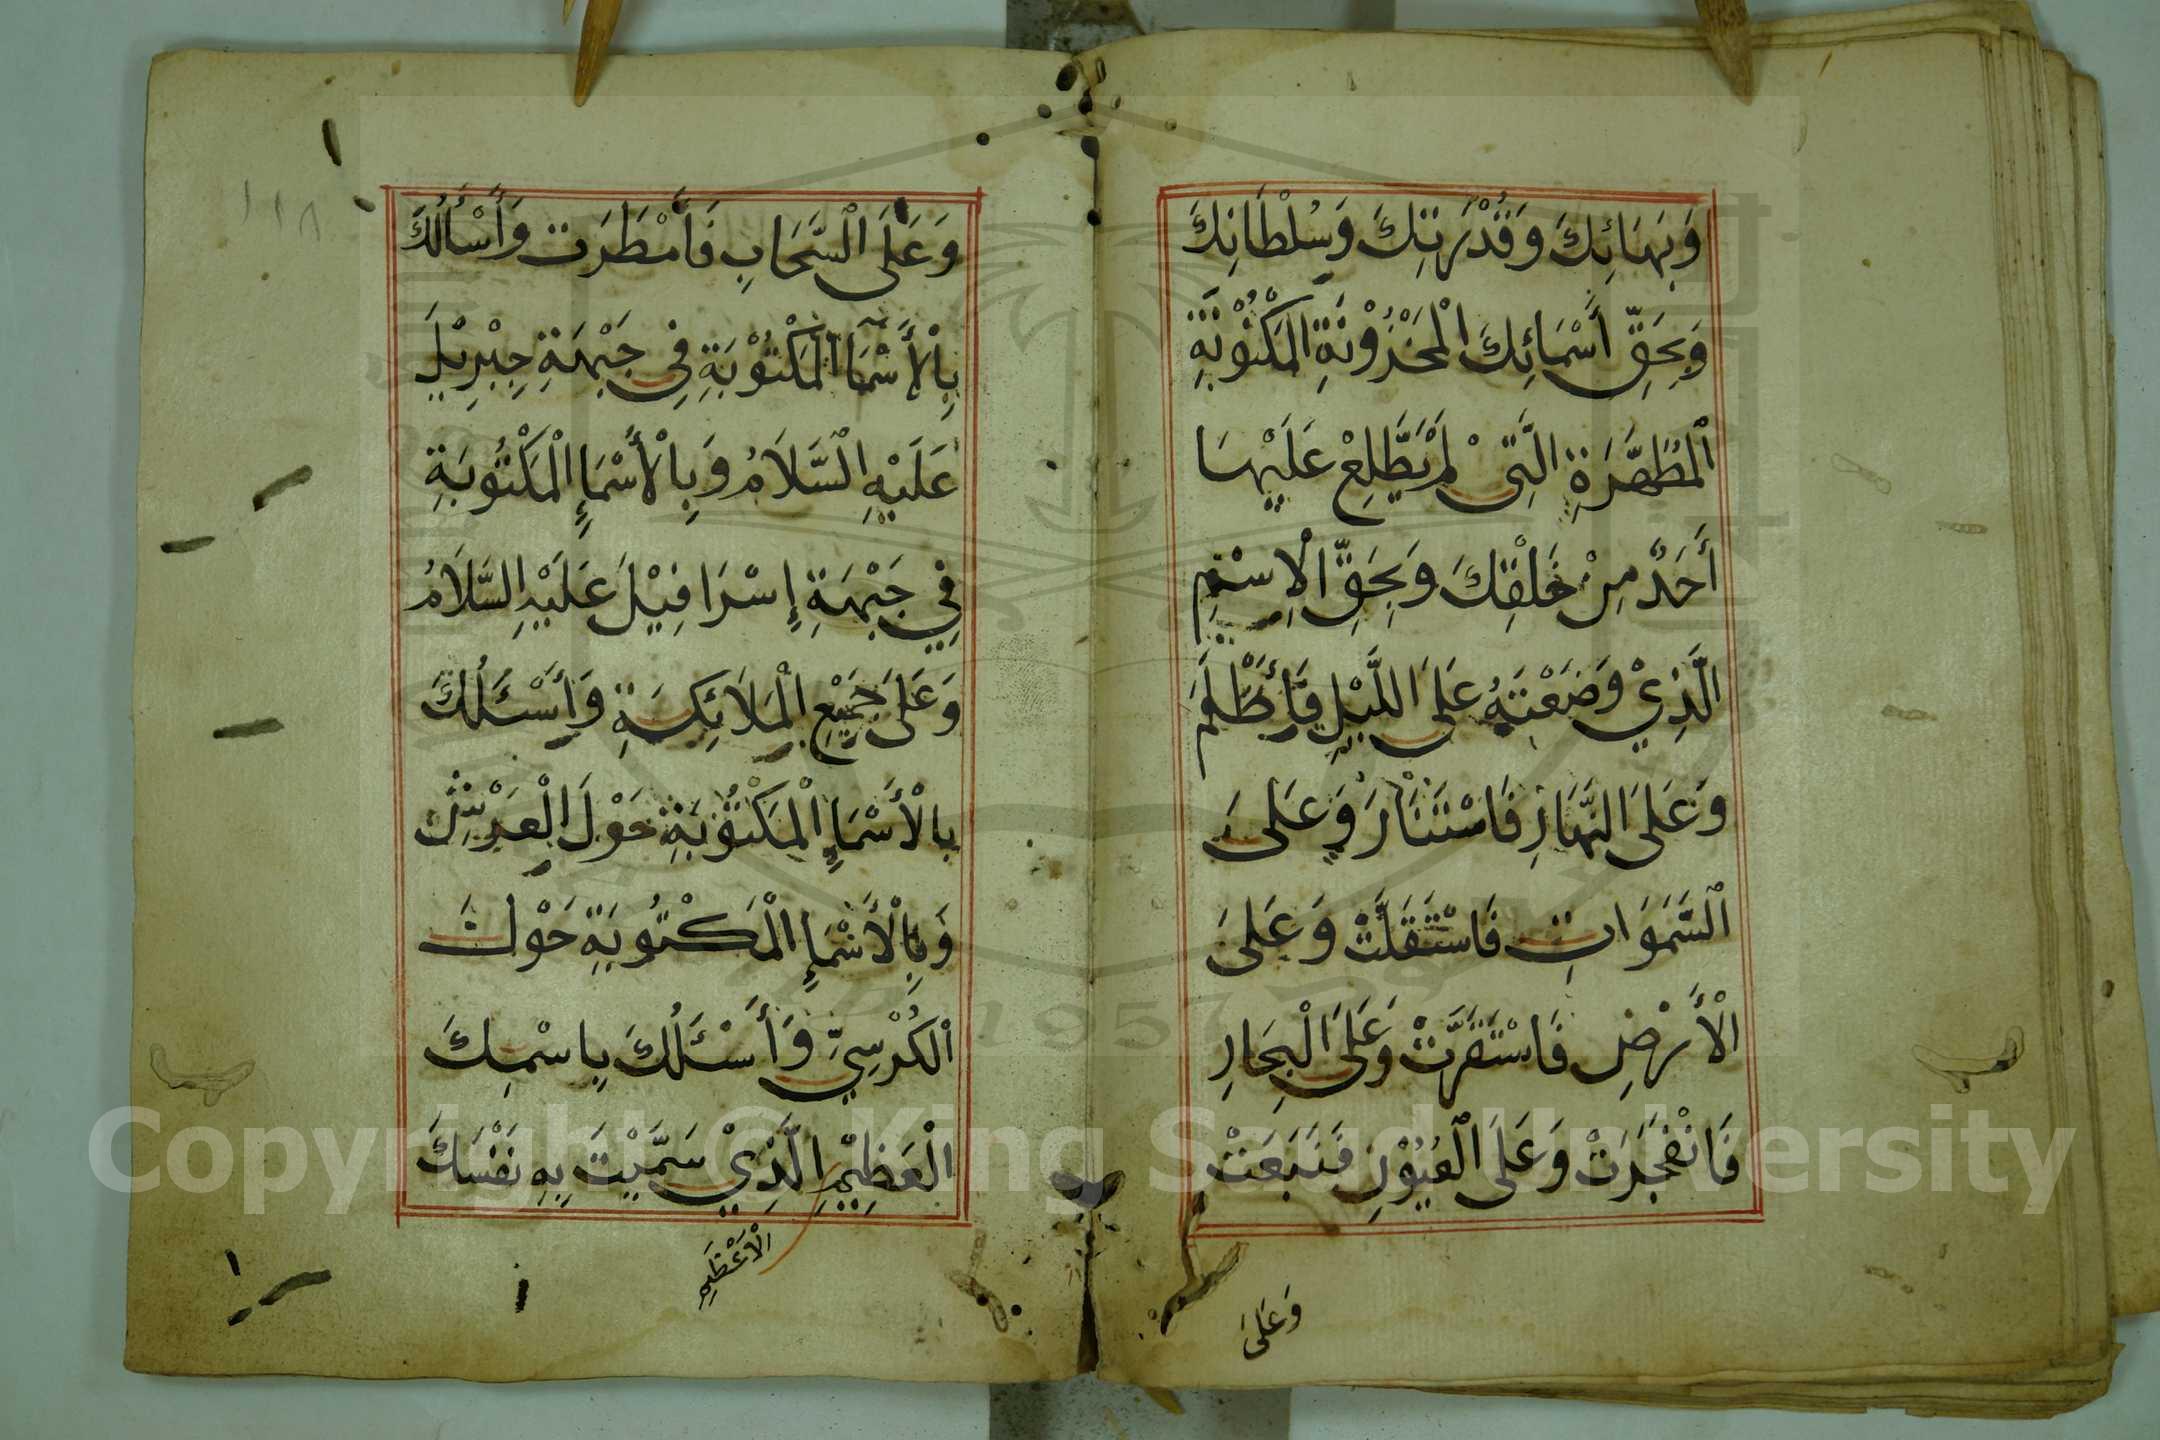 وَبَهَائِكَ وَقُدْرَتِكَ وَسُلْطَانِكَ
وَبِحَقِّ أَسْمَائِكَ الْمَخْزُوْنَةِ الْمَكْنُوْنَةِ
الْمُطَهَّرَةِ الَّتِيْ لَمْ يَطَّلِعْ عَلَيْهَا
أَحَدٌ مِنْ خَلْقِكَ وَبِحَقِّ الْاِسْمِ
الَّذِيْ وَضَعْتَهُ عَلَى اللَّيْلِ فَأَظْلَمَ
وَعَلَى النَّهَارِ فَاسْتَنَارَ وَعَلَى
السَّمَوَاتِ فَاسْتَقَلَّتْ وَعَلَى
الْأَرْضِ فَاسْتَقَرَّتْ وَعَلَى الْبِحَارِ
فَانْفَجَرَتْ وَعَلَى الْعُيُوْنِ فَنَبَعَتْ
وَعَلَى
١١٨
وَعَلَى السَّحَابِ فَأَمْطَرَت وَأَسْأَلُكَ
بِالْأَسْمَآ الْمَكْتُوْبَةِ فِي جَبْهَةِ جِبْرِيْلَ
عَلَيْهِ السَّلَامُ وَبِالْأَسْمَاءِ الْمَكْتُوبَةِ
فِي جَبْهَةِ إِسْرَافِيْلَ عَلَيْهِ السَّلَامُ
وَعَلَى جَمِيْعِ الْمَلَائِكَةِ وَأَسْئَلُكَ
بِالْأَسْمَاءِ الْمَكْتُوْبَةِ حَوْلَ الْعَرْشِ
وَبِالْأَسْمَاءِ الْمَكْتُوبَةِ حَوْلَ
الْكُرْسِيِّ وَأَسْئَلُكَ بِاسْمِكَ
الْعَظِيْمِ الَّذِيْ سَمَّيْتَ بِهِ نَفْسَكَ
الْاَعْظَمِ
1957
Copyright © King Saud University